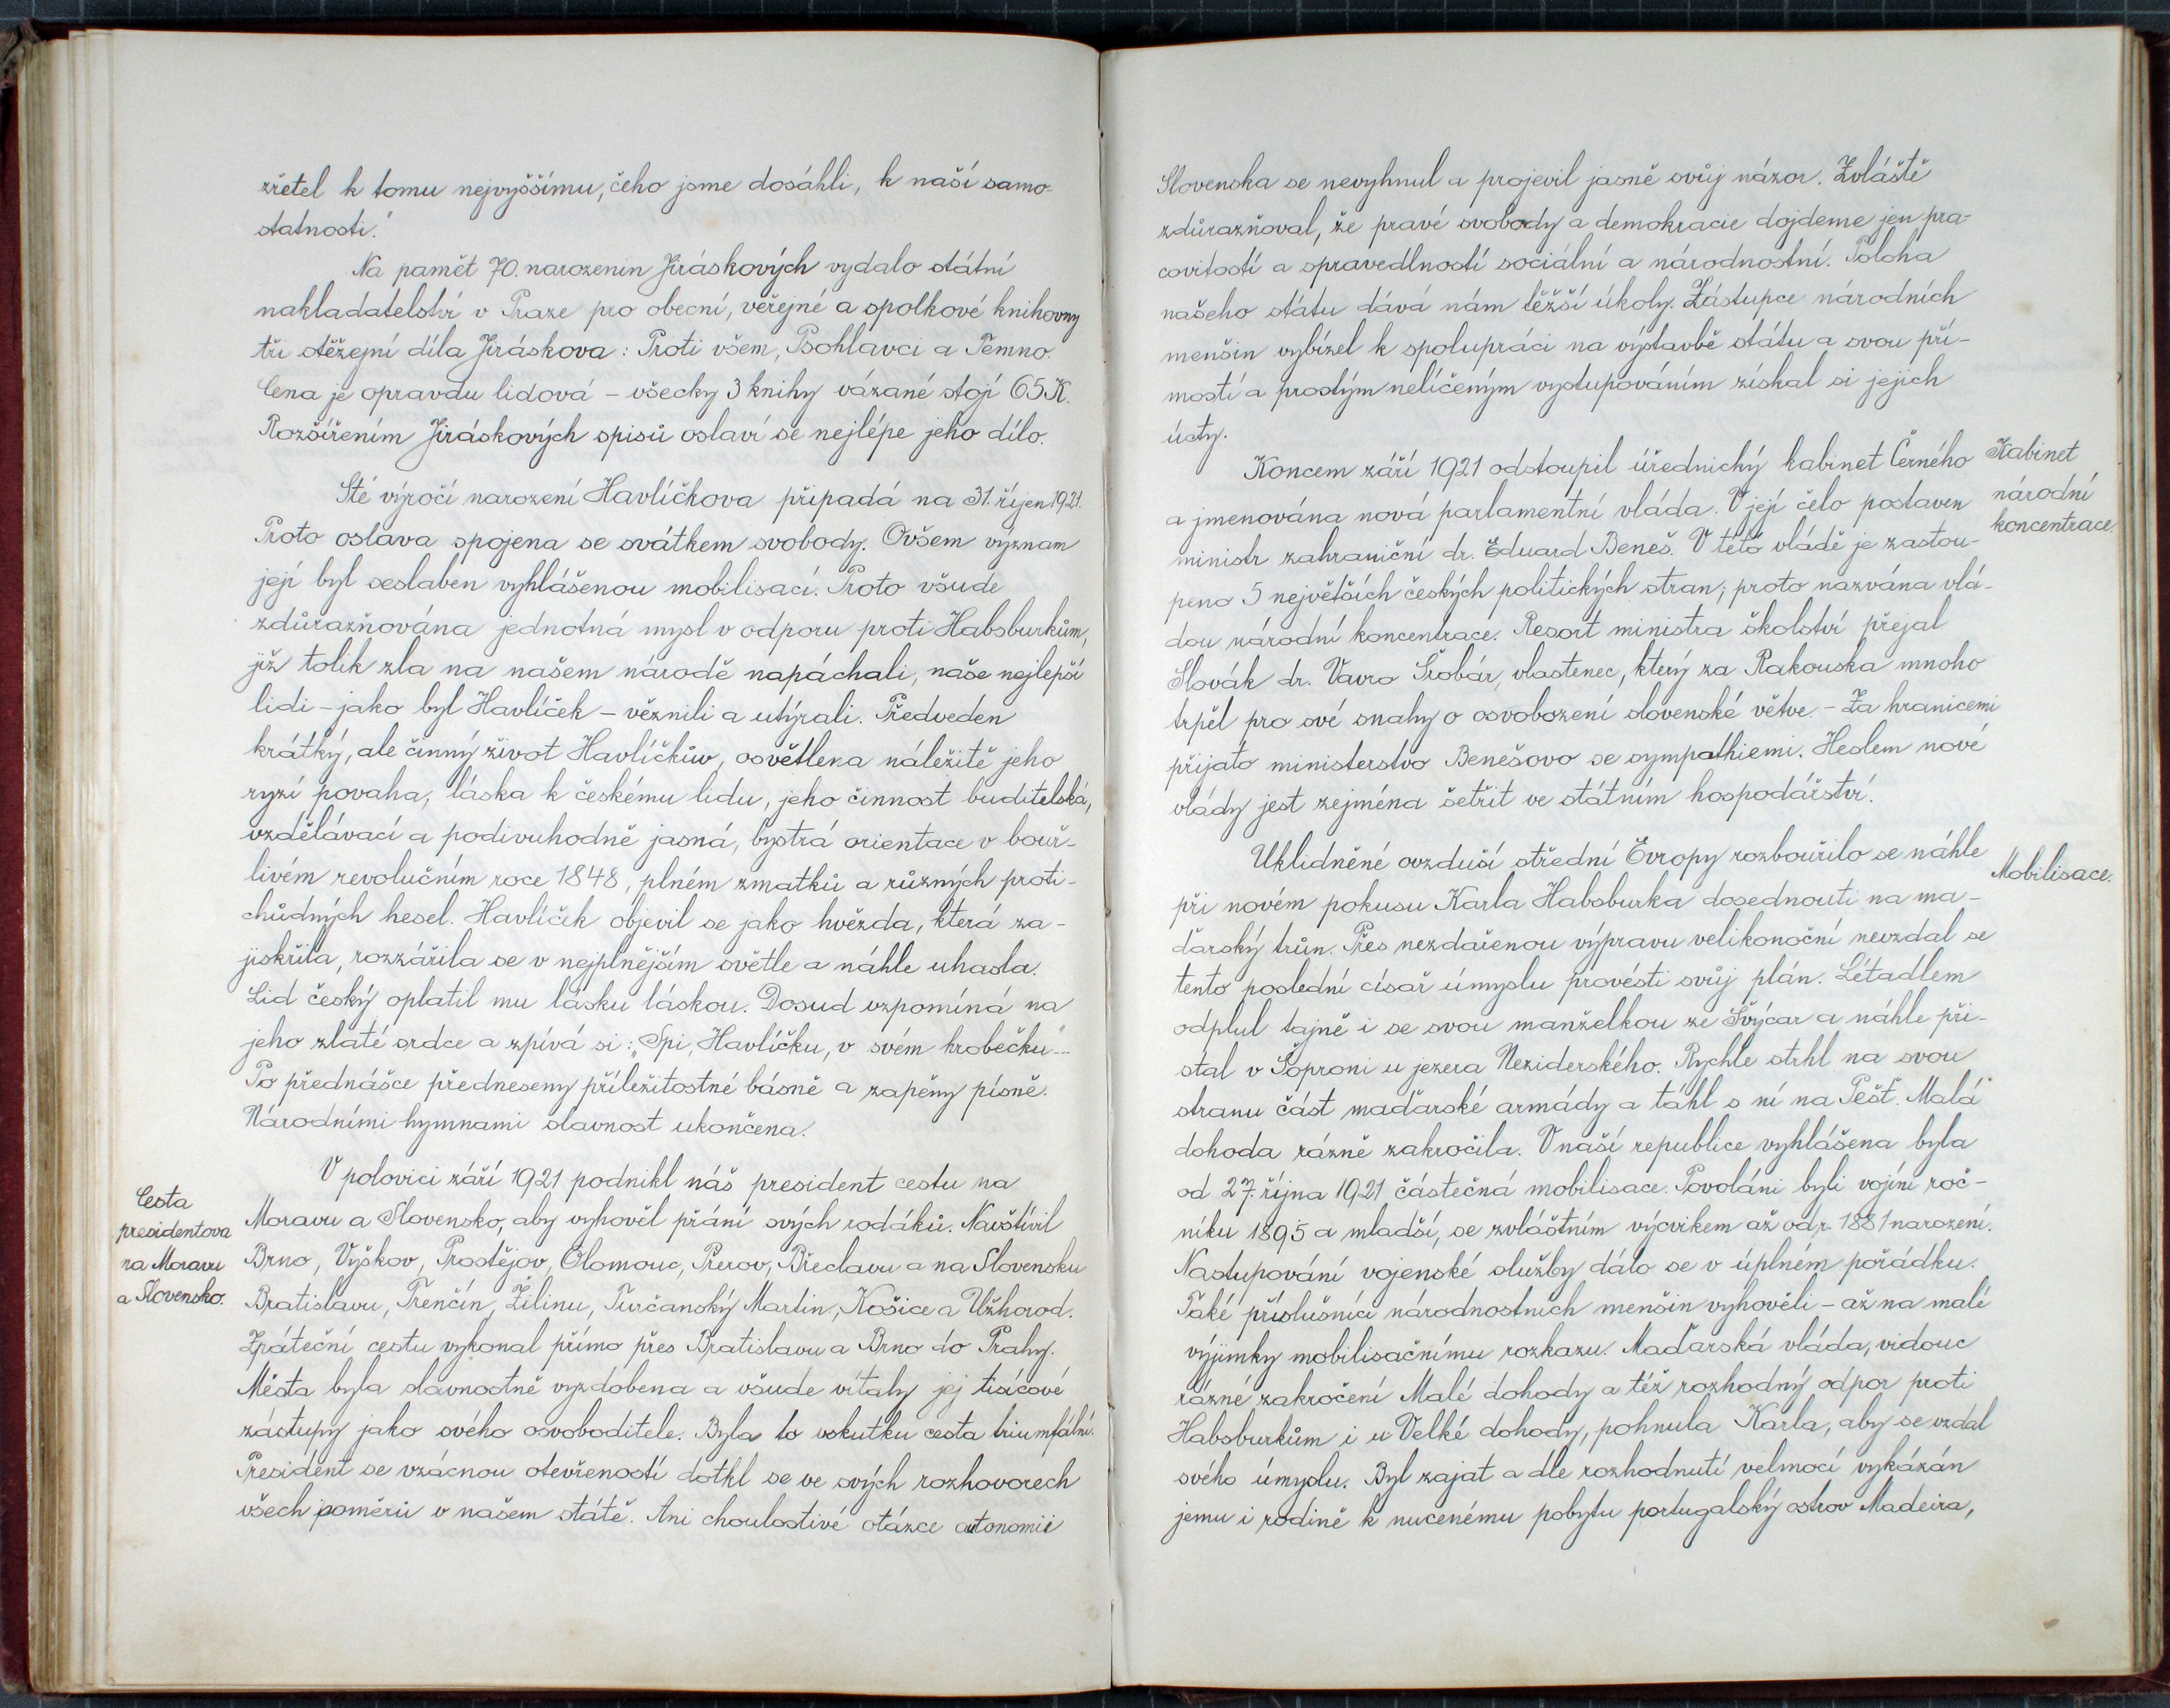 zřetel k tomu nejvyššímu, čeho jsme dosáhli, k naší samo-
statnosti."
Na pamět 70. narozenin Jiráskových vydalo státní
nakladatelství v Praze pro obecní, veřejné a spolkové knihovny
tři stěžejní díla Jiráskova: Proti všem, Psohlavci a Temno.
Cena je opravdu lidová – všecky 3 knihy vázané stojí 65 K.
Rozšířením Jiráskových spisů oslaví se nejlépe jeho dílo.
Sté výročí narození Havlíčkova připadá na 31. říjen 1921.
Proto oslava spojena se svátkem svobody. Ovšem význam
její byl seslaben vyhlášenou mobilisací. Proto všude
zdůrazňována jednotná mysl v odporu proti Habsburkům,
již tolik zla na našem národě napáchali, naše nejlepší
lidi – jako byl Havlíček – věznili a utýrali. Předveden
krátký, ale činný život Havlíčkův, osvětlena náležitě jeho
ryzí povaha, láska k českému lidu, jeho činnost buditelská,
vzdělávací a podivuhodně jasná, bystrá orientace v bouř-
livém revolučním roce 1848, plném zmatků a různých proti-
chůdných hesel. Havlíček objevil se jako hvězda, která za-
jiskřila, rozzářila se v nejplnějším světle a náhle uhasla.
Lid český oplatil mu lásku láskou. Dosud vzpomíná na
jeho zlaté srdce a zpívá si: „Spi, Havlíčku, v svém hrobečku"...
Po přednášce předneseny příležitostné básně a zapěny písně.
Národními hymnami slavnost ukončena.
Cesta
presidentova
na Moravu
a Slovensko.
V polovici září 1921 podnikl náš president cestu na
Moravu a Slovensko, aby vyhověl přání svých rodáků. Navštívil
Brno, Vyškov, Prostějov, Olomouc, Přerov, Břeclavu a na Slovensku
Bratislavu, Trenčín, Žilinu, Turčanský Martin, Košice a Užhorod.
Zpáteční cestu vykonal přímo přes Bratislavu a Brno do Prahy.
Města byla slavnostně vyzdobena a všude vítaly jej tisícové
zástupy jako svého osvoboditele. Byla to vskutku cesta triumfální.
President se vzácnou otevřeností dotkl se ve svých rozhovorech
všech poměrů v našem státě. Ani choulostivé otázce autonomii
Slovenska se nevyhnul a projevil jasně svůj názor. Zvláště
zdůrazňoval, že pravé svobody a demokracie dojdeme jen pra-
covitostí a spravedlností sociální a národnostní. Poloha
našeho státu dává nám těžší úkoly. Zástupce národních
menšin vybízel k spolupráci na výstavbě státu a svou pří-
mostí a prostým nelíčeným vystupováním získal si jejich
úcty.
Kabinet
národní
koncentrace.
Koncem září 1921 odstoupil úřednický kabinet Černého
a jmenována nová parlamentní vláda. V její čelo postaven
ministr zahraniční dr. Eduard Beneš. V této vládě je zastou-
peno 5 největších českých politických stran; proto nazvána vlá-
dou národní koncentrace. Resort ministra školství přejal
Slovák dr. Vavro Šrobár, vlastenec, který za Rakouska mnoho
trpěl pro své snahy o osvobození slovenské větve. – Za hranicemi
přijato ministerstvo Benešovo se sympathiemi. Heslem nové
vlády jest zejména šetřit ve státním hospodářství.
Mobilisace.
Uklidněné ovzduší střední Evropy rozbouřilo se náhle
při novém pokusu Karla Habsburka dosednouti na ma-
ďarský trůn. Přes nezdařenou výpravu velikonoční nevzdal se
tento poslední císař úmyslu provésti svůj plán. Létadlem
odplul tajně i se svou manželkou ze Švýcar a náhle při-
stal v Šoproni u jezera Neziderského. Rychle strhl na svou
stranu část maďarské armády a táhl s ní na Pešť. Malá
dohoda rázně zakročila. V naší republice vyhlášena byla
od 27. října 1921 částečná mobilisace. Povoláni byli vojíni roč-
níku 1895 a mladší, se zvláštním výcvikem až od r. 1881 narození.
Nastupování vojenské služby dálo se v úplném pořádku.
Také příslušníci národnostních menšin vyhověli – až na malé
výjimky mobilisačnímu rozkazu. Maďarská vláda, vidouc
rázné zakročení Malé dohody a též rozhodný odpor proti
Habsburkům i u Velké dohody, pohnula Karla, aby se vzdal
svého úmyslu. Byl zajat a dle rozhodnutí velmocí vykázán
jemu i rodině k nucenému pobytu portugalský ostrov Madeira,